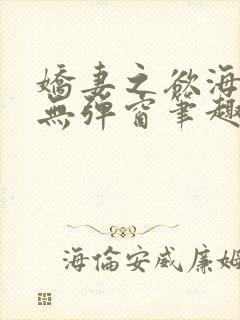 嬌妻之慾海
無彈窗筆趣
海倫安威廉姆